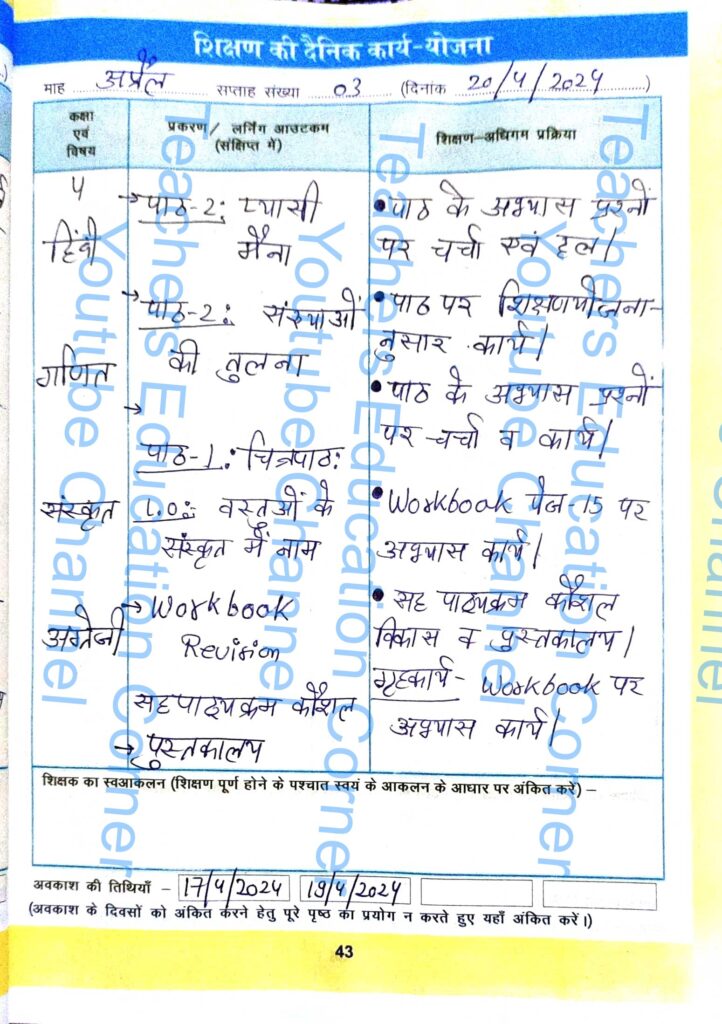 शिक्षण की दैनिक कार्य-योजना
माह अप्रैल सप्ताह संख्या 03 (दिनांक 20/4/2024)
कक्षा
एवं
विषय
प्रकरण / लर्निंग आउटकम
(संक्षिप्त में)
शिक्षण-अधिगम प्रक्रिया
5
हिंदी
→ पाठ-2: प्यासी
मैना
• पाठ के अभ्यास प्रश्नों
पर चर्चा एवं हल।
गणित
→ पाठ-2: संख्याओं
की तुलना
• पाठ पर शिक्षणयोजना-
नुसार कार्य।
संस्कृत
→
पाठ-1: चित्रपाठ:
L.O: वस्तुओं के
संस्कृत में नाम
• पाठ के अभ्यास प्रश्नों
पर चर्चा व कार्य।
अंग्रेजी
→ Workbook
Revision
• Workbook पेज-15 पर
अभ्यास कार्य।
सहपाठ्यक्रम कौशल
→ पुस्तकालय
• सह पाठ्यक्रम कौशल
विकास व पुस्तकालय।
गृहकार्य- Workbook पर
अभ्यास कार्य।
शिक्षक का स्वआकलन (शिक्षण पूर्ण होने के पश्चात स्वयं के आकलन के आधार पर अंकित करें) –
अवकाश की तिथियाँ – 17/4/2024 19/4/2024
(अवकाश के दिवसों को अंकित करने हेतु पूरे पृष्ठ का प्रयोग न करते हुए यहाँ अंकित करें।)
43
Teachers Education Corner
Youtube Channel
Teachers Education Corner
Youtube Channel
Teachers Education Corner
Youtube Channel
Teachers Education Corner
Youtube Channel